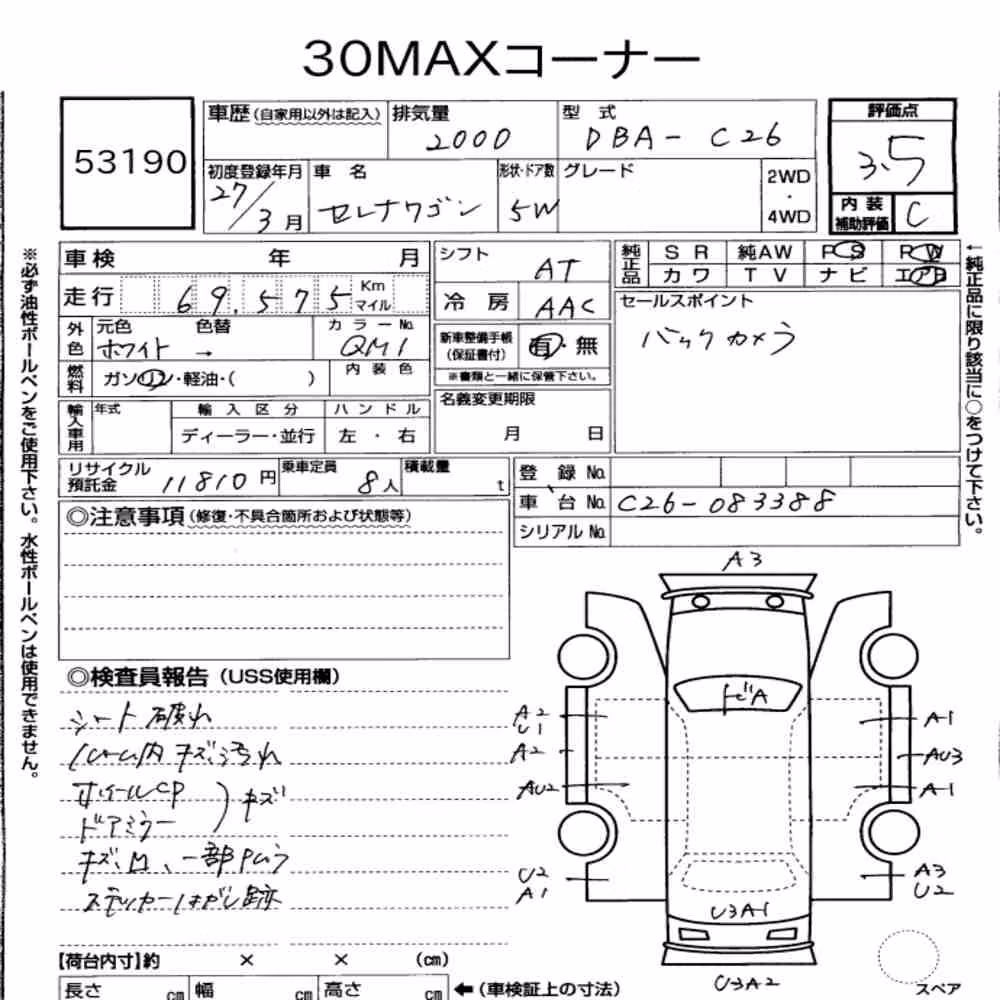 30MAXコーナー
53190
車歴(自家用以外は記入) 排気量 2000 型式 DBA-C26 評価点 3.5
初度登録年月 27/3月 車名 セレナワゴン 形状・ドア数 5W グレード 2WD・4WD 内装補助評価 C
車検 年 月 シフト AT 純正品 SR 純AW PS PW
カワ TV ナビ エアB
走行 69,575 Km マイル 冷房 AAC セールスポイント
バックカメラ
外色 元色 ホワイト 色替 → カラーNo. QM1 新車整備手帳(保証書付) 有・無
※書類と一緒に保管下さい。
燃料 ガソリン・軽油・( ) 内装色
輸入車用 年式 輸入区分 ハンドル 名義変更期限
ディーラー・並行 左・右 月 日
リサイクル預託金 11810円 乗車定員 8人 積載量 t 登録No.
車台No. C26-083388
シリアルNo.
◎注意事項(修復・不具合箇所および状態等)
◎検査員報告(USS使用欄)
シート破れ
ルーム内キズ汚れ
ホイールCP
ドアミラー )キズ
キズ、凹、一部Pムラ
ステッカーはがし跡
A3
ドビA
A2
U1
A2
AU2
U2
A1
A1
AU3
A1
A3
U2
U3A1
U3A2
スペア
【荷台内寸】約 × × (cm)
長さ cm 幅 cm 高さ cm ←(車検証上の寸法)
※必ず油性ボールペンをご使用下さい。水性ボールペンは使用できません。
←純正品に限り該当に○をつけて下さい。